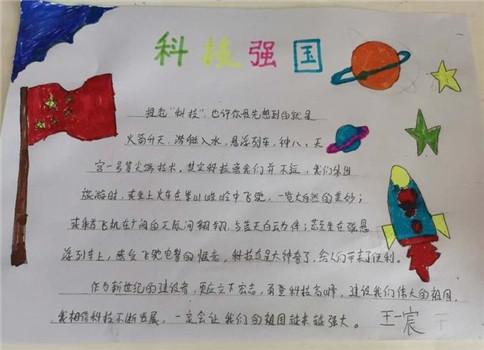 科技强国
提起“科技”,也许你最先想到的就是
火箭升天、潜艇入水、悬浮列车、神八、天
宫一号等尖端技术,其实科技离我们并不远,我们集团
旅游时,乘坐上火车在崇山峻岭中飞驰,一览大自然的美妙;
乘着飞机在广阔的天辰间翱翔,与蓝天白云为伴;若坐在磁悬
浮列车上,感受飞驰电掣的恒惑,科技这是太神奇了,给人们带来了便利。
作为新世纪的建设者,更应立下宏志,勇登科技高峰,建设我们伟大的祖国,
我相信科技不断发展,一定会让我们的祖国越来越强大。
王一宸